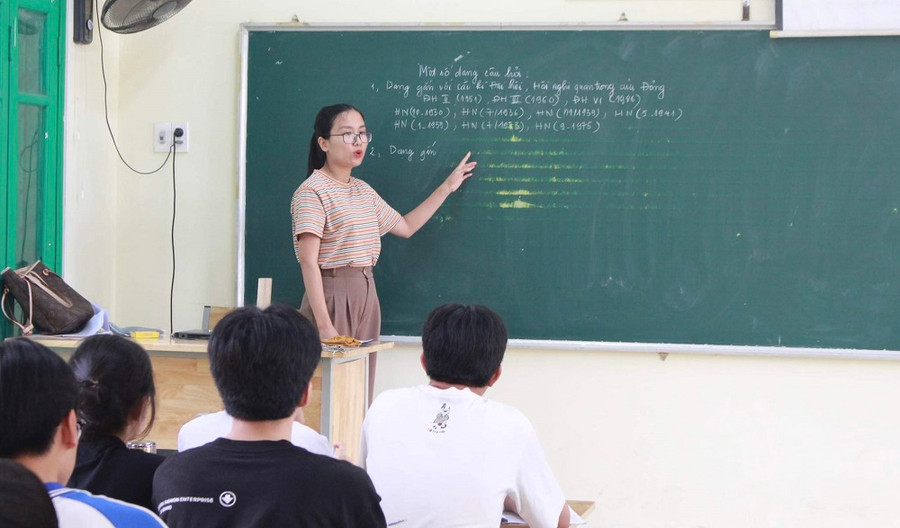 Một số dạng câu hỏi :
1, Dạng gắn với các kì Đại hội, Hội nghị quan trọng của Đảng
ĐH II (1951), ĐH III (1960), ĐH VI (1986)
HN (10.1930), HN (7/1936), HN (11/1939), HN (5.1941)
HN (1.1959), HN (7/1973), HN (9-1975)
2, Dạng gắn
ENTERPRISE